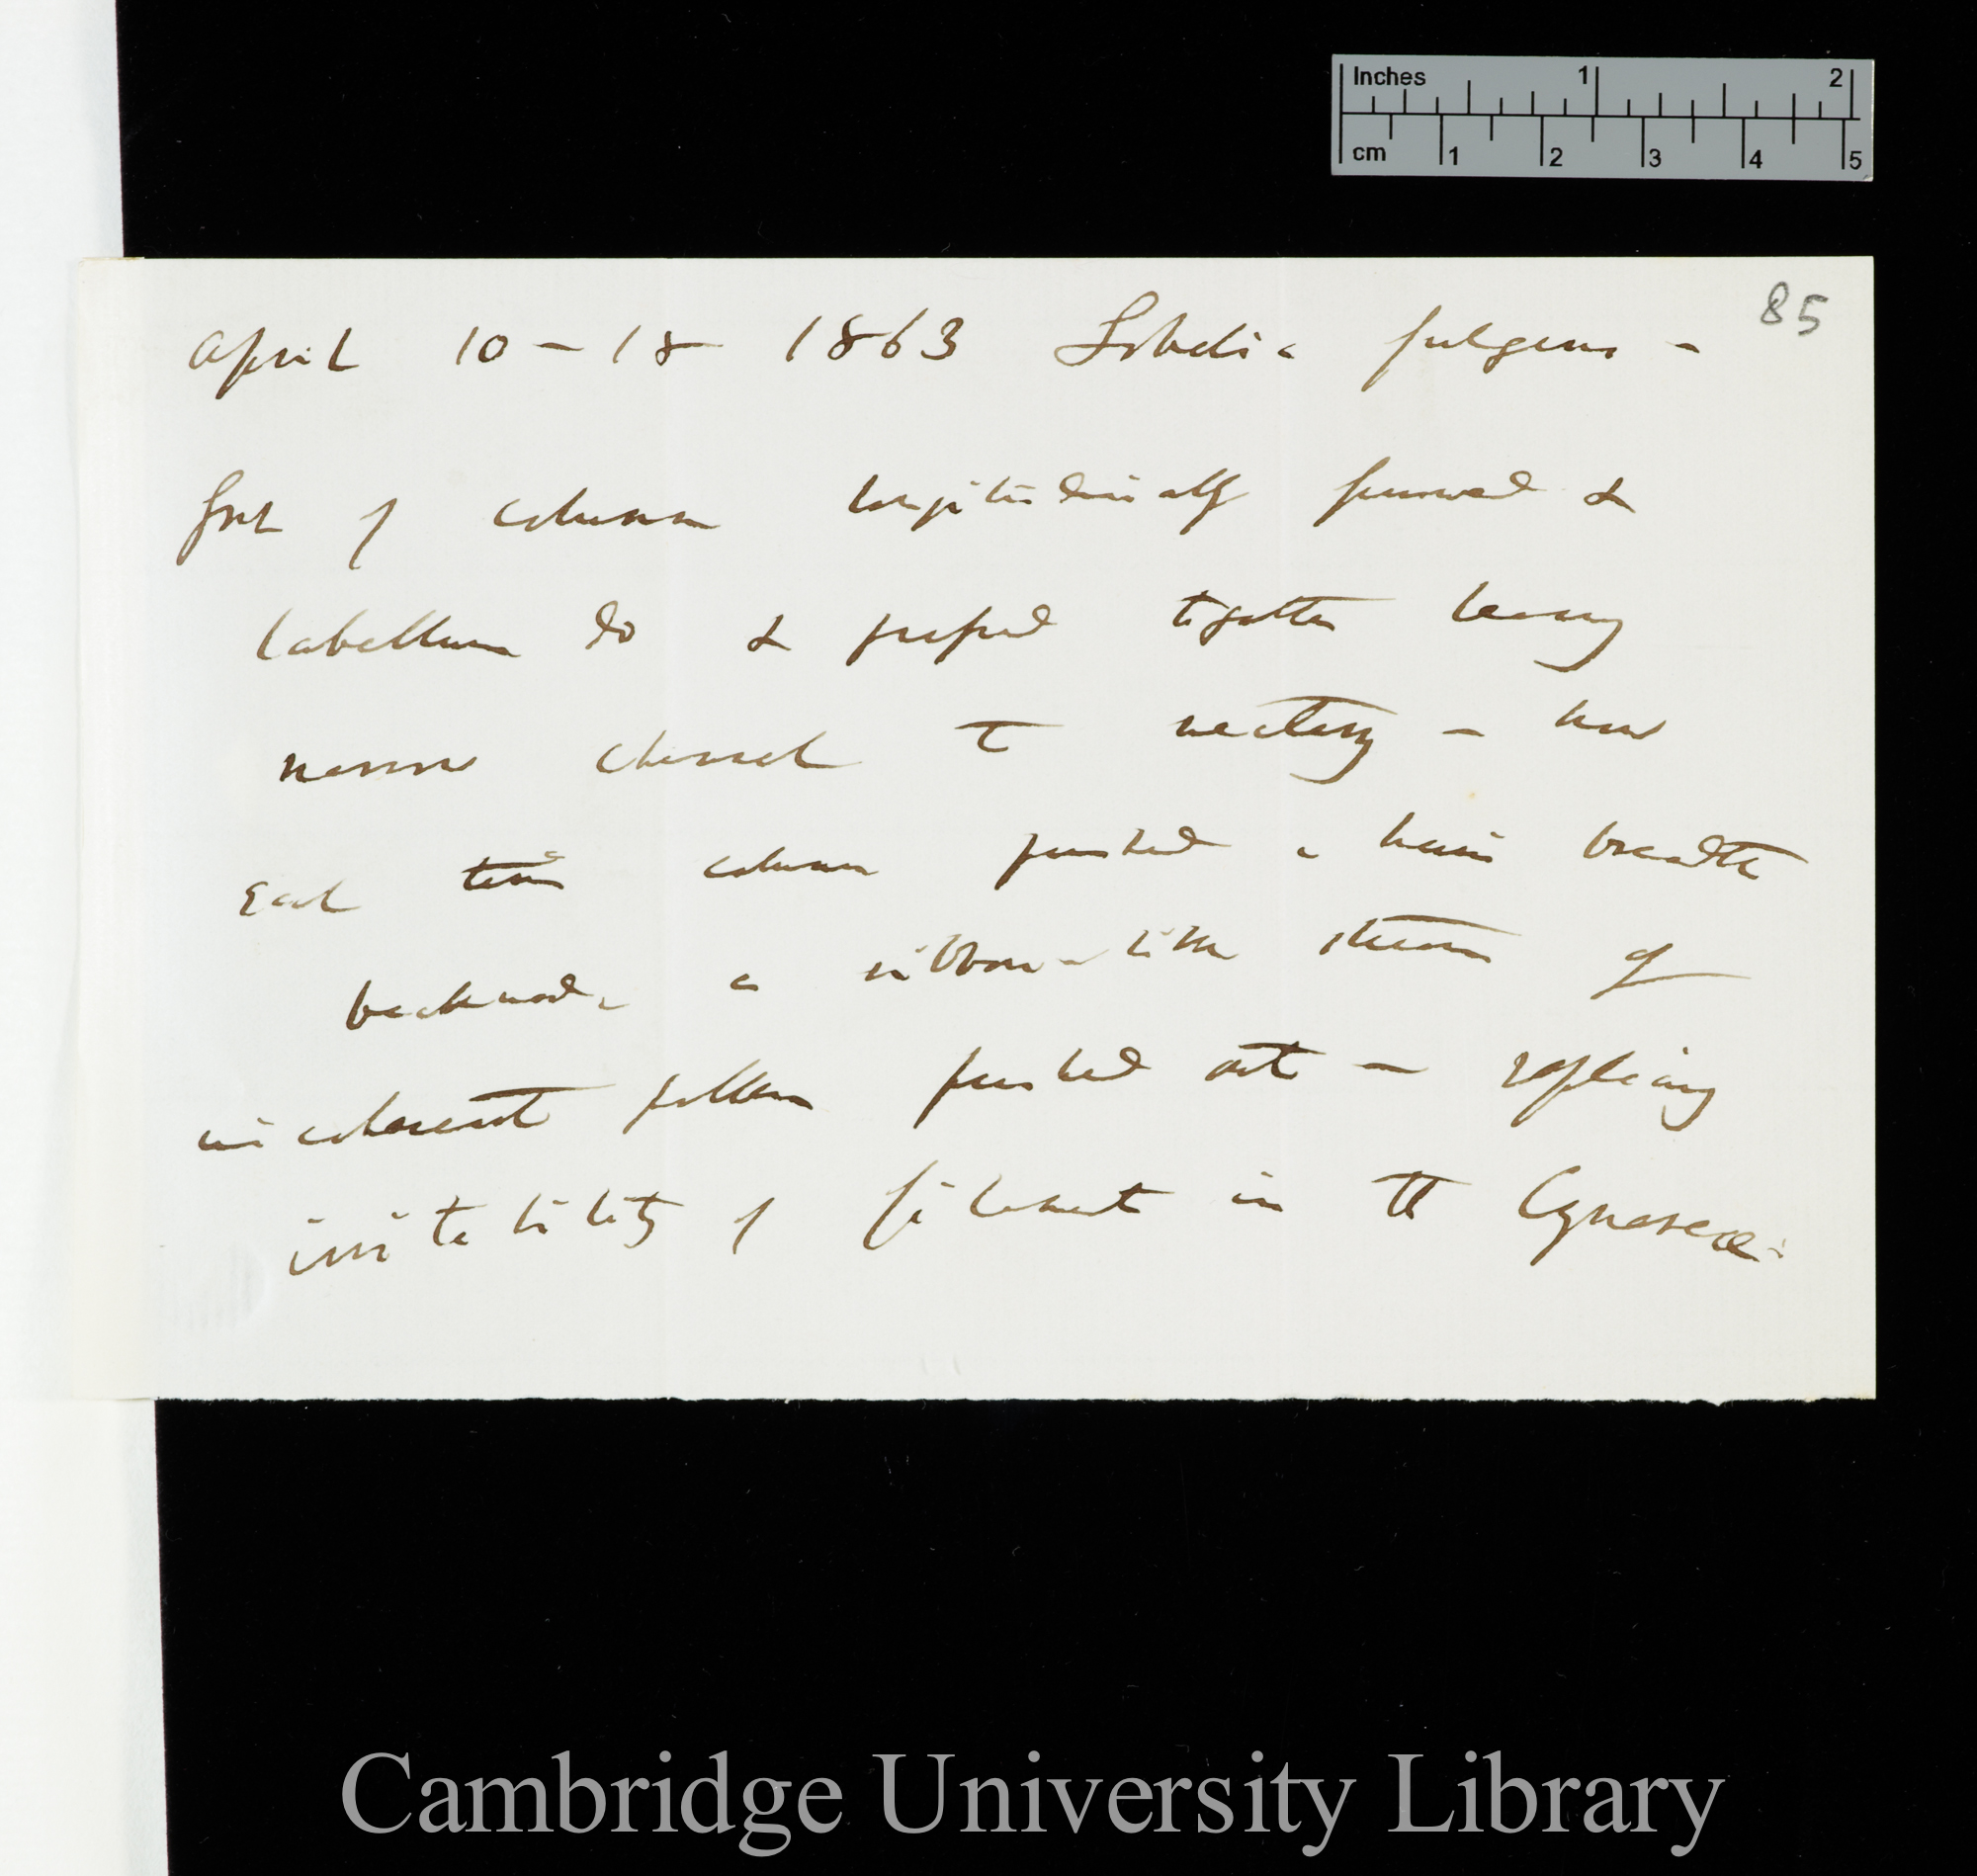 Inches 1 2
cm 1 2 3 4 5
85
April 10 – 18 1863 Lobelia fulgens –
foot of column longitudinally furrowed &
labellum do & pressed together leaving
narrow channel to nectary –
Each time column pushed a hair's breadth
backwards a ribbon-like stream of
incoherent pollen pushed out – replacing
irritability of filament in the Cynareæ.
Cambridge University Library